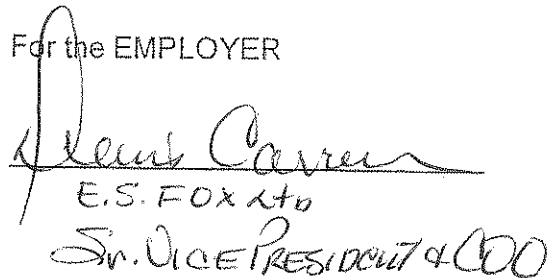 For the EMPLOYER
E.S. FOX Ltd
Sr. VICE PRESIDENT & COO